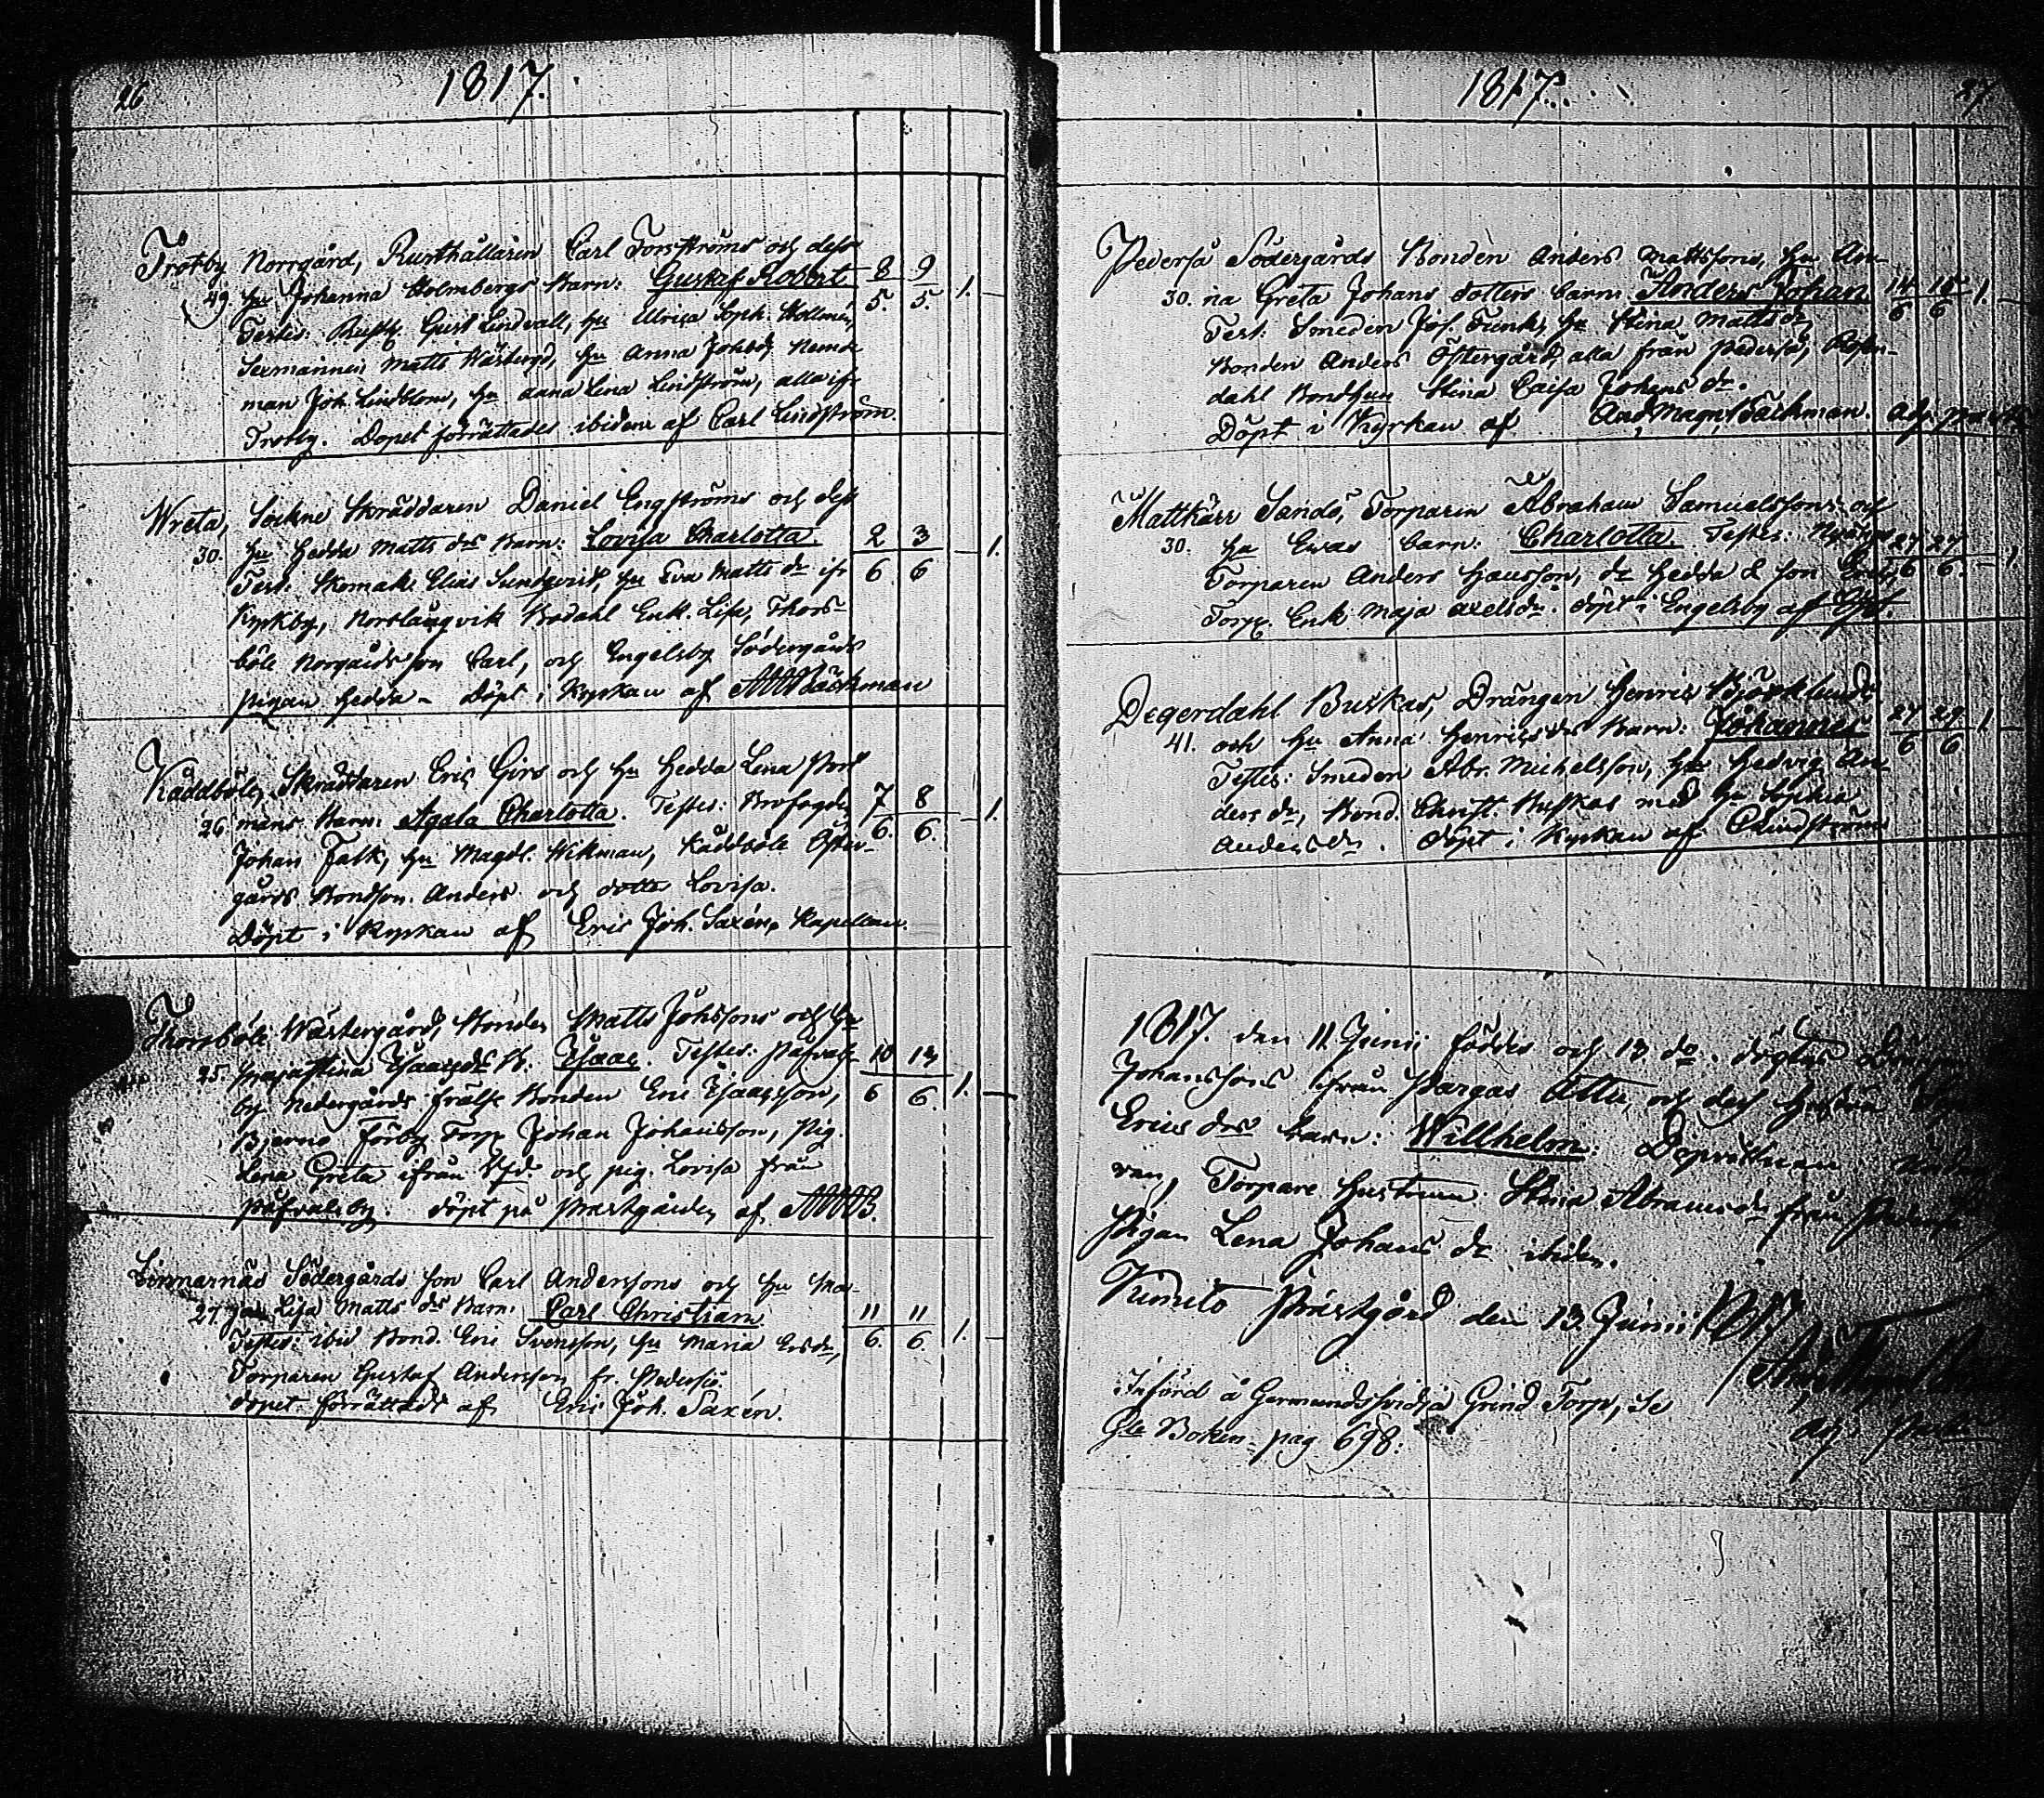 26
1817.
Trotby Norrgård, Rusthållaren Carl Forsströms och dess
49. Hu Johanna Holmbergs Barn: Gustaf Robert 8 9
Testes: Rusth. Gust Lindvall, Hu Ulrica Soph. 5. 5. 1. —
Sexmannen Matts Wäsbergs, Hu Anna Johsdr
man Joh. Lindblom, Hu Anna Lena Lindström, alla ifr
Trotby. Dopet förrättades ibidem af Carl Lindström.
Wreta, Sockne Skräddaren Daniel Engströms och dess
30. Hu Hedda Matts drs Barn: Lovisa Charlotta. 2 3 — 1.
Test: Skomak. Elias Sundqvist, Hu Eva Matts dr ifr 6 6
Kyrkby, Norrlångvik Rodahl Enk. Lisa, Thors-
böle Norgårds son Carl, och Engelsby Södergårds
pigan Hedda - Döpt i Kyrkan af AMTäckman
Kåddböle, Skräddaren Eric Girs och Hu Hedda Lena
26 mans Barn: Agata Charlotta. Testes: Brofogden 7 8 — 1.
Johan Falk, Hu Magdl. Wikman, Kåddböle Öster- 6. 6.
gårds Bondson Anders och dotter Lovisa.
Döpt i Kyrkan af Eric Joh. Saxén, Kapellan.
Thorsböle Wästergård, Bonden Matts Johssons och Hu
25. Majastina Isaacsdrs B: Isaac. Testes: Påfvals- 10 13
by Nedergårds frälse Bonden Eric Isaacsson, 6 6. 1. —
Bjerno Förby Torp Johan Johansson, Pig.
Lena Greta ifrån och pig. Lovisa från
Påfvalsby. döpt på Prestgården af AMTB.
Linnarnäs Södergårds son Carl Anderssons och Hu Ma-
27. ja Lisa Matts drs Barn: Carl Christian 11 11
Testes: ibid Bond. Eric Svensson, Hu Maria Ersdr, 6. 6. 1. —
Torparen Gustaf Andersson fr. Pederså.
dopet förrättade af Eric Joh. Saxén.
1817.
27
Pederså Södergårds Bonden Anders Mattssons, Hu An-
30. na Greta Johans dotters barn: Anders Johan 14 15 1. —
Test: Smeden Jos. Funk, Hu Stina Mattsdr, 6 6
Bonden Anders Östergård, alla från Pederså, Rosen-
dahl Bondhun Stina Caisa Johans dr.
Döpt i Kyrkan af And Magn Täckman. Adj.
Mattkärr Sandö, Torparen Abraham Samuelssons och
30. Hu Ewas barn: Charlotta. Testes: 27 27
Torparen Anders Hansson, dr Hedda & son 6 6. — 1
Torp. Enk Maja Axelsdr. döpt i Engelsby af
Degerdahl Buskas, Drängen Henric Björklunds
41. och Hu Anna Henricsdrs Barn: Johannes 27 29 1. —
Testes: Smeden Abr. Michelsson, Hu Hedvig An- 6 6
ders dr, Bond. Christ. Buskas med Hu Sophia
Andersdr. Döpt i Kyrkan af CLindström
1817. den 11 Junii föddes och 13 do. döptes
Johanssons ifrån Pargas Attu, och dess Hustru
Erics drs barn: Willhelm: Dopvittnen
ran, Torpare Hustrun Stina Abramsdr från
Pigan Lena Johans dr ibidem.
Kimito Prästgård den 13 Junii 1817
Införd å Germundsvedja Grind Torp, Se
Gla Boken pag 698:
Adj.